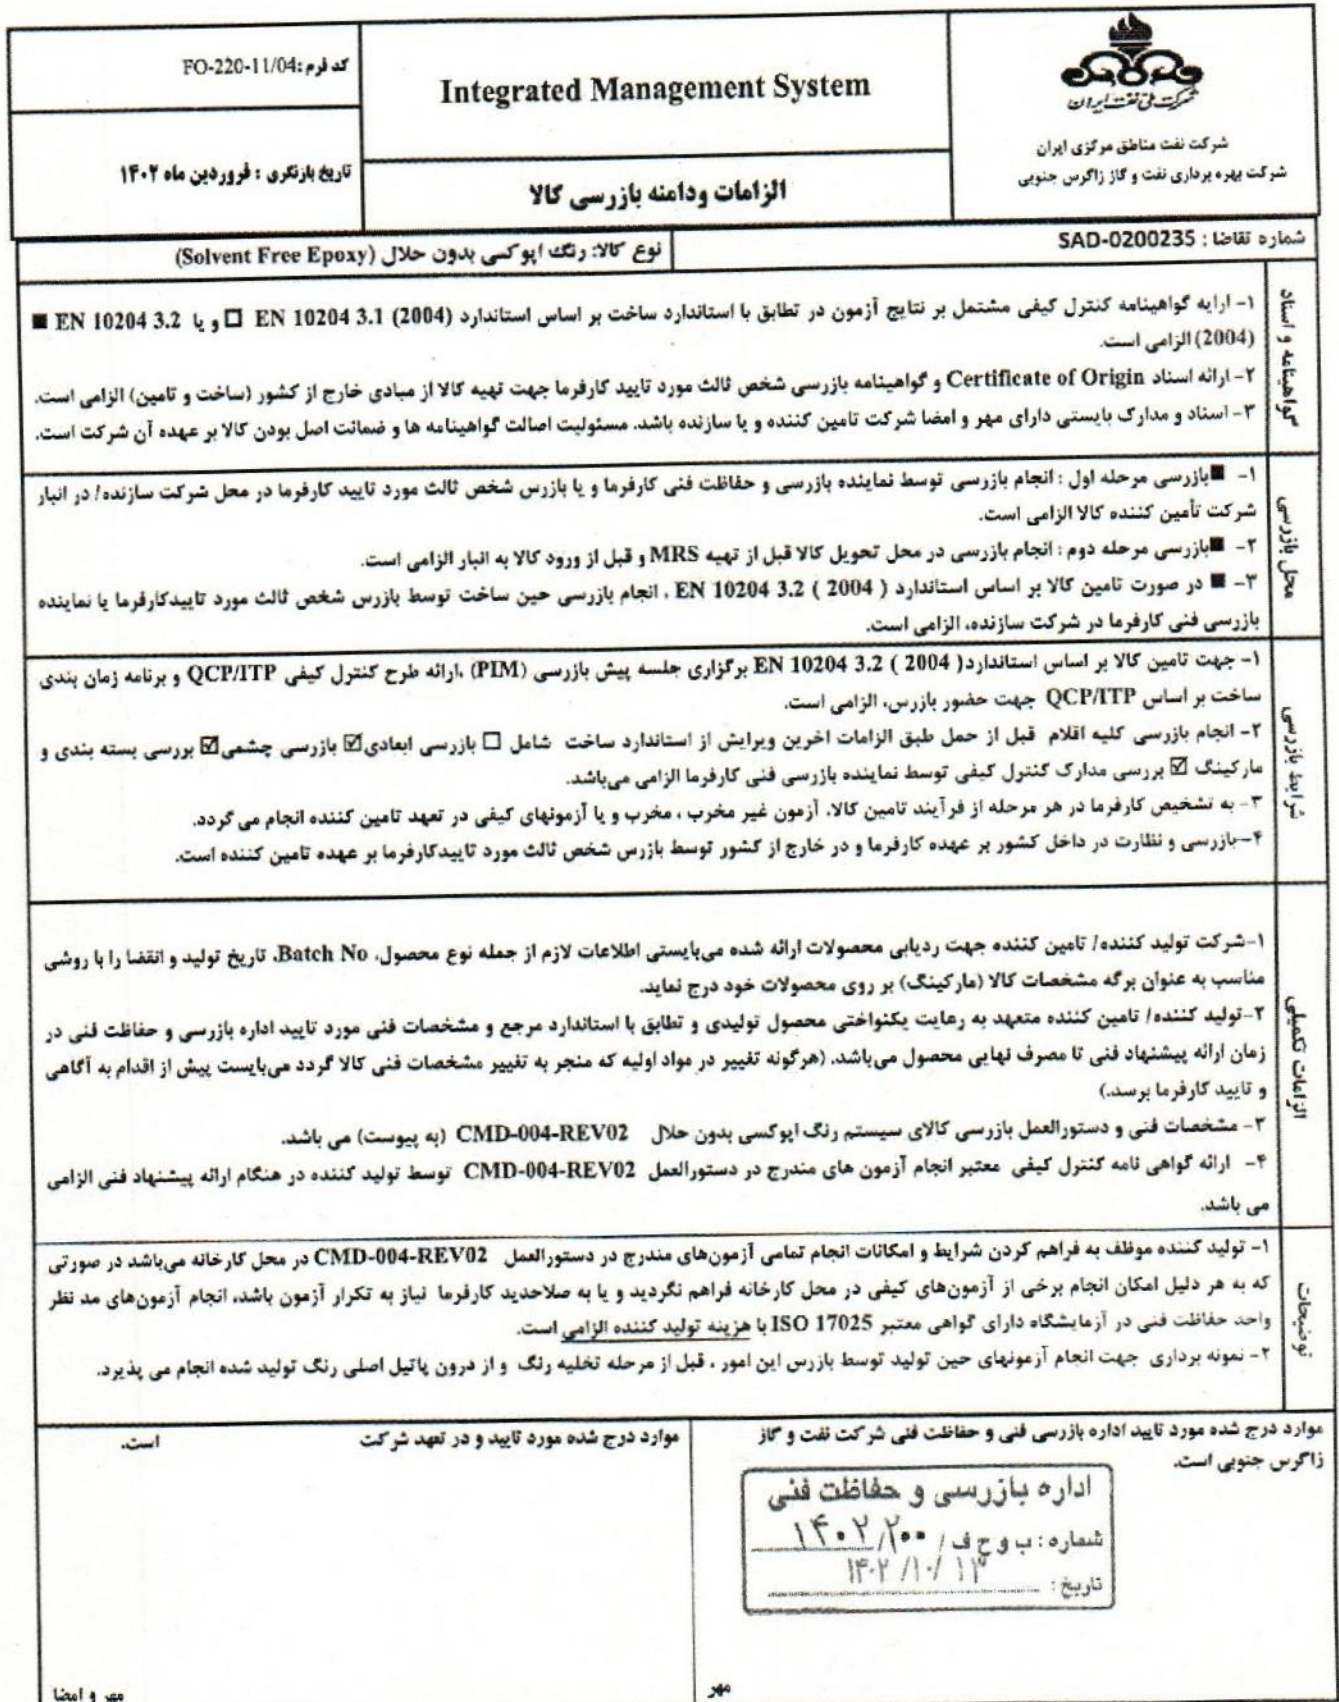 شرکت ملی نفت ایران
شرکت نفت مناطق مرکزی ایران
شرکت بهره برداری نفت و گاز زاگرس جنوبی
Integrated Management System
الزامات ودامنه بازرسی کالا
کد فرم:FO-220-11/04
تاریخ بازنگری : فروردین ماه ۱۴۰۲
شماره تقاضا : SAD-0200235
نوع کالا: رنگ اپوکسی بدون حلال (Solvent Free Epoxy)
گواهینامه و اسناد
۱- ارایه گواهینامه کنترل کیفی مشتمل بر نتایج آزمون در تطابق با استاندارد ساخت بر اساس استاندارد EN 10204 3.1 (2004) ☐ و یا EN 10204 3.2 ■
(2004) الزامی است.
۲- ارائه اسناد Certificate of Origin و گواهینامه بازرسی شخص ثالث مورد تایید کارفرما جهت تهیه کالا از مبادی خارج از کشور (ساخت و تامین) الزامی است.
۳- اسناد و مدارک بایستی دارای مهر و امضا شرکت تامین کننده و یا سازنده باشد. مسئولیت اصالت گواهینامه ها و ضمانت اصل بودن کالا بر عهده آن شرکت است.
محل بازرسی
۱- ■بازرسی مرحله اول : انجام بازرسی توسط نماینده بازرسی و حفاظت فنی کارفرما و یا بازرس شخص ثالث مورد تایید کارفرما در محل شرکت سازنده/ در انبار
شرکت تأمین کننده کالا الزامی است.
۲- ■بازرسی مرحله دوم : انجام بازرسی در محل تحویل کالا قبل از تهیه MRS و قبل از ورود کالا به انبار الزامی است.
۳- ■ در صورت تامین کالا بر اساس استاندارد EN 10204 3.2 ( 2004 ) ، انجام بازرسی حین ساخت توسط بازرس شخص ثالث مورد تاییدکارفرما یا نماینده
بازرسی فنی کارفرما در شرکت سازنده، الزامی است.
شرایط بازرسی
۱- جهت تامین کالا بر اساس استاندارد( 2004 ) EN 10204 3.2 برگزاری جلسه پیش بازرسی (PIM) ،ارائه طرح کنترل کیفی QCP/ITP و برنامه زمان بندی
ساخت بر اساس QCP/ITP جهت حضور بازرس، الزامی است.
۲- انجام بازرسی کلیه اقلام قبل از حمل طبق الزامات اخرین ویرایش از استاندارد ساخت شامل ☐ بازرسی ابعادی☑ بازرسی چشمی☑ بررسی بسته بندی و
مارکینگ ☑ بررسی مدارک کنترل کیفی توسط نماینده بازرسی فنی کارفرما الزامی می‌باشد.
۳- به تشخیص کارفرما در هر مرحله از فرآیند تامین کالا، آزمون غیر مخرب ، مخرب و یا آزمونهای کیفی در تعهد تامین کننده انجام می گردد.
۴-بازرسی و نظارت در داخل کشور بر عهده کارفرما و در خارج از کشور توسط بازرس شخص ثالث مورد تاییدکارفرما بر عهده تامین کننده است.
الزامات تکمیلی
۱-شرکت تولید کننده/ تامین کننده جهت ردیابی محصولات ارائه شده می‌بایستی اطلاعات لازم از جمله نوع محصول، Batch No، تاریخ تولید و انقضا را با روشی
مناسب به عنوان برگه مشخصات کالا (مارکینگ) بر روی محصولات خود درج نماید.
۲-تولید کننده/ تامین کننده متعهد به رعایت یکنواختی محصول تولیدی و تطابق با استاندارد مرجع و مشخصات فنی مورد تایید اداره بازرسی و حفاظت فنی در
زمان ارائه پیشنهاد فنی تا مصرف نهایی محصول می‌باشد. (هرگونه تغییر در مواد اولیه که منجر به تغییر مشخصات فنی کالا گردد می‌بایست پیش از اقدام به آگاهی
و تایید کارفرما برسد.)
۳- مشخصات فنی و دستورالعمل بازرسی کالای سیستم رنگ اپوکسی بدون حلال CMD-004-REV02 (به پیوست) می باشد.
۴- ارائه گواهی نامه کنترل کیفی معتبر انجام آزمون های مندرج در دستورالعمل CMD-004-REV02 توسط تولید کننده در هنگام ارائه پیشنهاد فنی الزامی
می باشد.
توضیحات
۱- تولید کننده موظف به فراهم کردن شرایط و امکانات انجام تمامی آزمون‌های مندرج در دستورالعمل CMD-004-REV02 در محل کارخانه می‌باشد در صورتی
که به هر دلیل امکان انجام برخی از آزمون‌های کیفی در محل کارخانه فراهم نگردید و یا به صلاحدید کارفرما نیاز به تکرار آزمون باشد، انجام آزمون‌های مد نظر
واحد حفاظت فنی در آزمایشگاه دارای گواهی معتبر ISO 17025 با هزینه تولید کننده الزامی است.
۲- نمونه برداری جهت انجام آزمونهای حین تولید توسط بازرس این امور ، قبل از مرحله تخلیه رنگ و از درون پاتیل اصلی رنگ تولید شده انجام می پذیرد.
موارد درج شده مورد تایید اداره بازرسی فنی و حفاظت فنی شرکت نفت و گاز
زاگرس جنوبی است.
اداره بازرسی و حفاظت فنی
شماره : ب و ح ف / ۱۴۰۲/۲۰۰
تاریخ : ۱۴۰۲/۱۰/۱۳
مهر
موارد درج شده مورد تایید و در تعهد شرکت است.
مهر و امضا